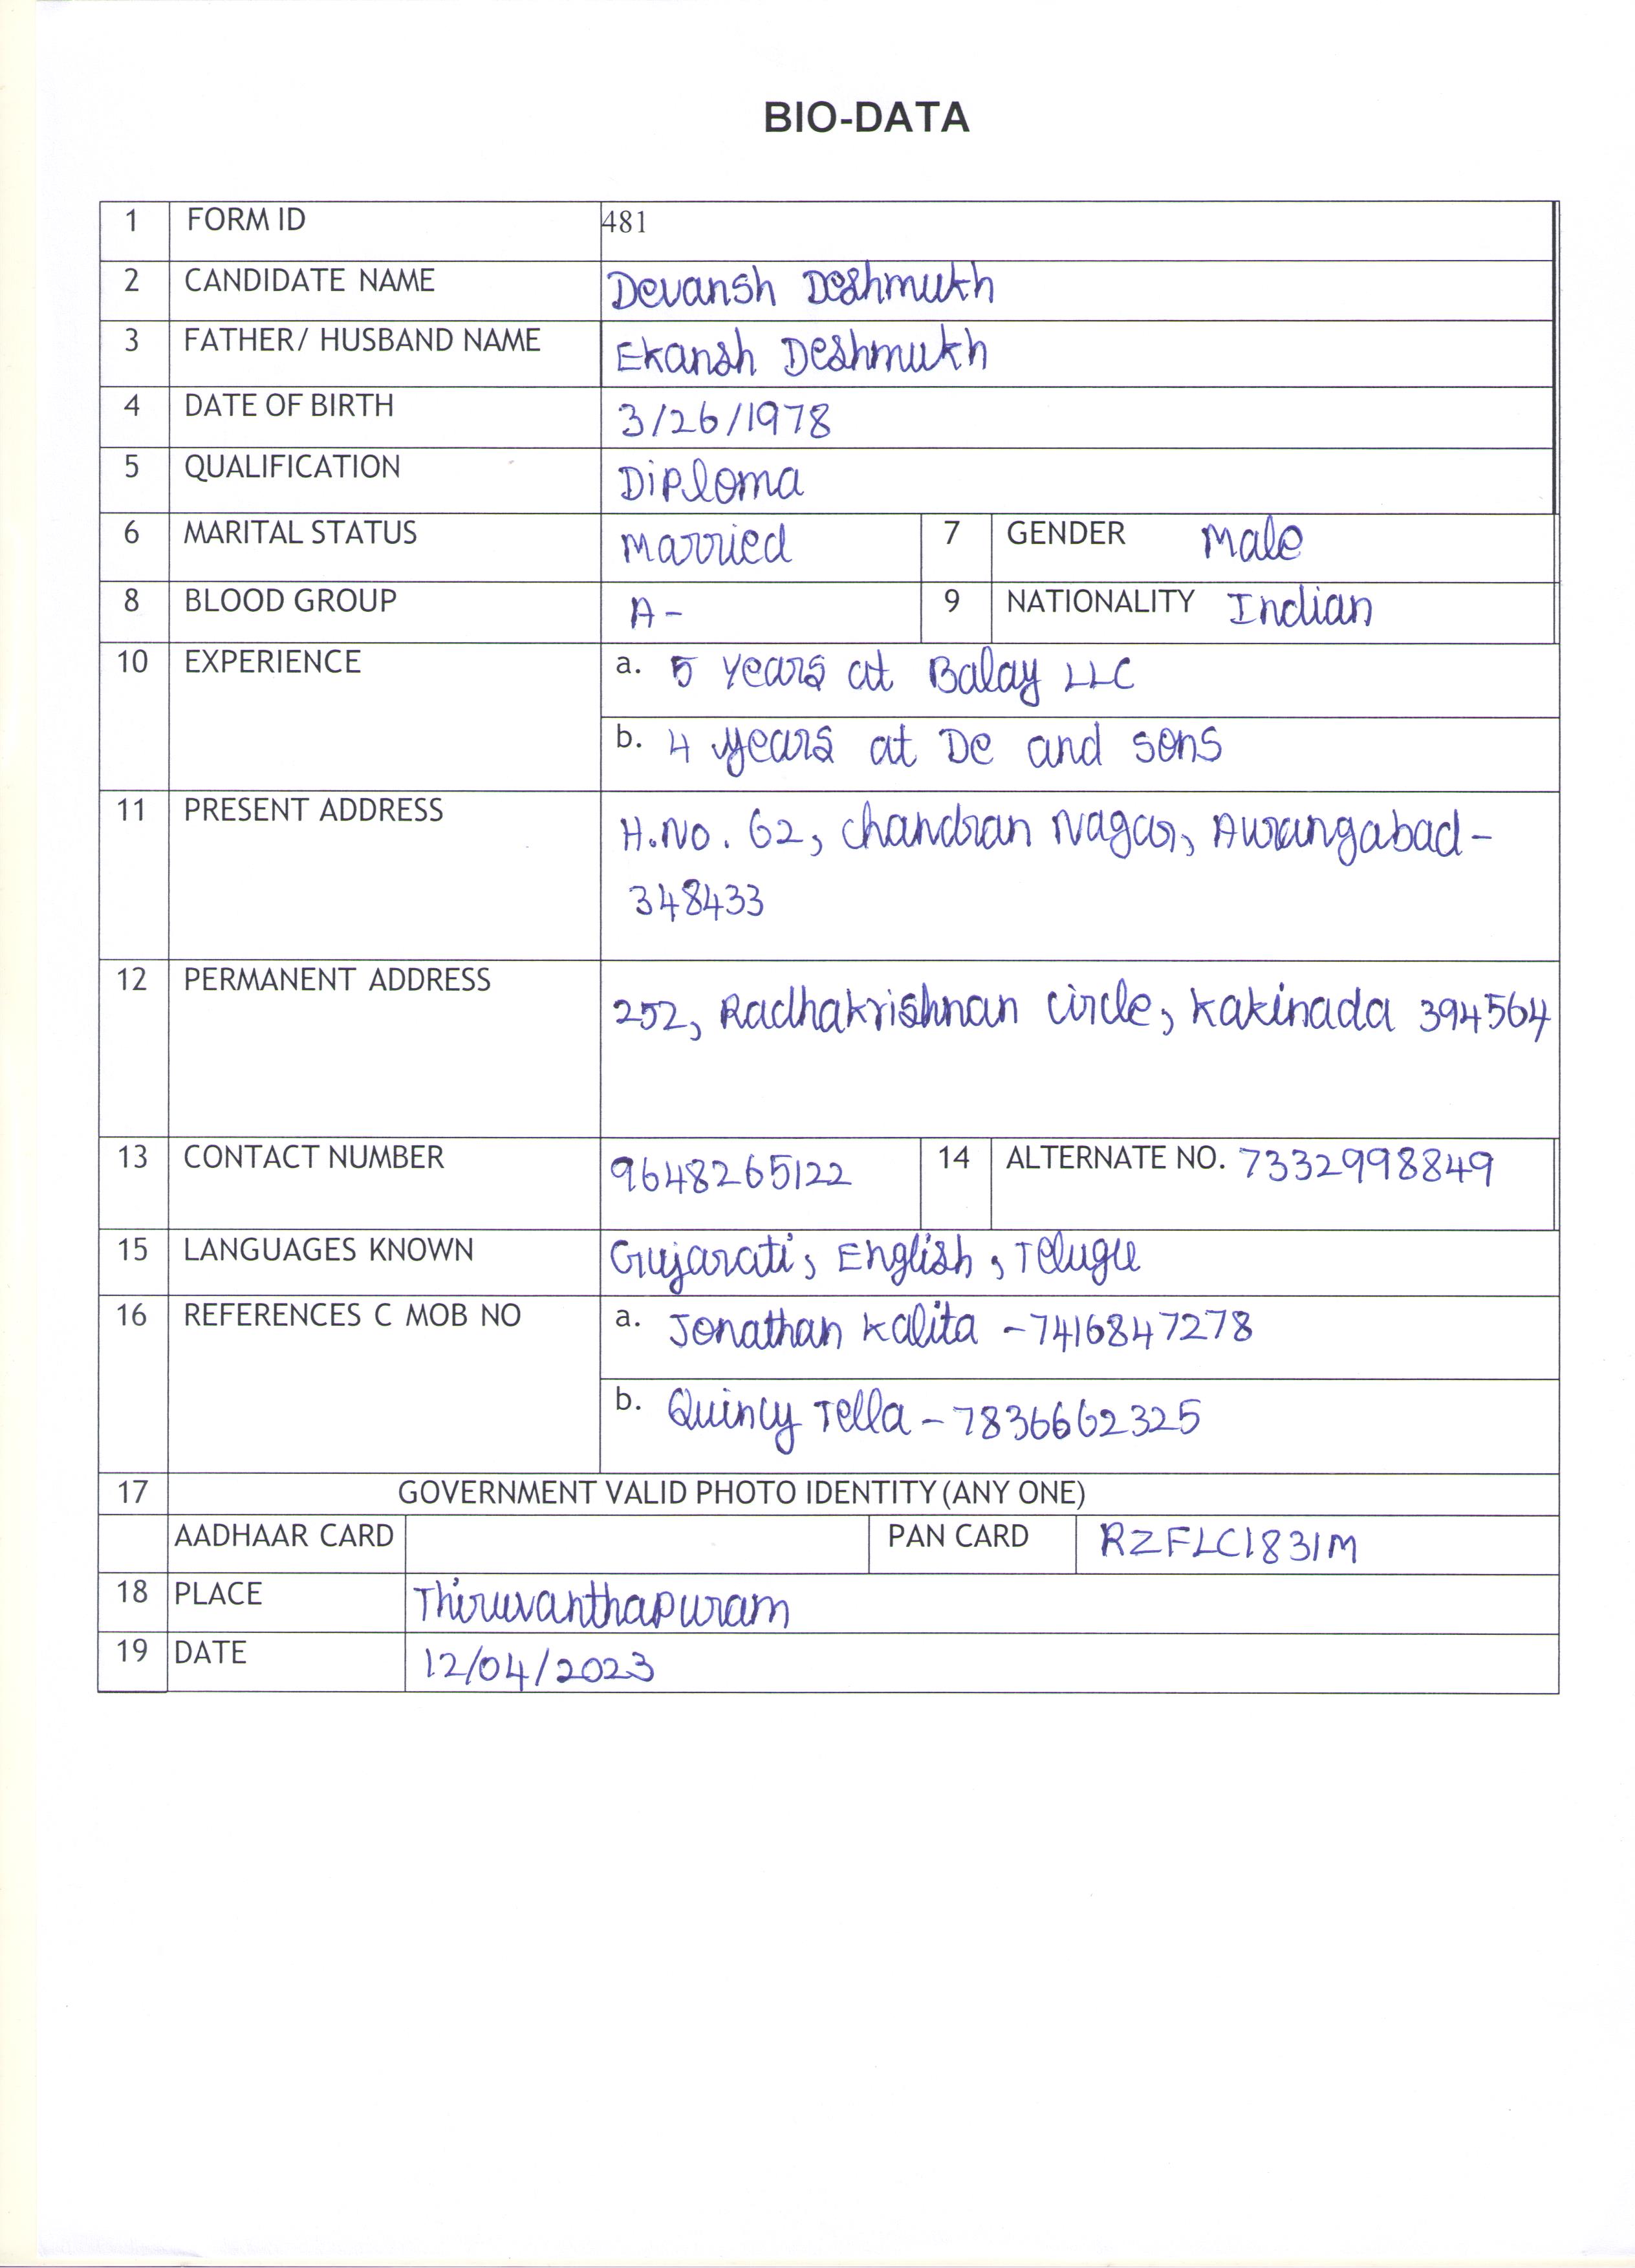 BIO-DATA
1 FORM ID 481
2 CANDIDATE NAME Devansh Deshmukh
3 FATHER/ HUSBAND NAME Ekansh Deshmukh
4 DATE OF BIRTH 3/26/1978
5 QUALIFICATION Diploma
6 MARITAL STATUS Married 7 GENDER Male
8 BLOOD GROUP A- 9 NATIONALITY Indian
10 EXPERIENCE a. 5 years at Balay LLC
b. 4 years at De and sons
11 PRESENT ADDRESS H.No. 62, Chandran Nagar, Aurangabad-
348433
12 PERMANENT ADDRESS 252, Radhakrishnan Circle, Kakinada 394564
13 CONTACT NUMBER 9648265122 14 ALTERNATE NO. 7332998849
15 LANGUAGES KNOWN Gujarati, English, Telugu
16 REFERENCES C MOB NO a. Jonathan Kalita -7416847278
b. Quincy Tella - 7836662325
17 GOVERNMENT VALID PHOTO IDENTITY (ANY ONE)
AADHAAR CARD PAN CARD RZFLC1831M
18 PLACE Thiruvanthapuram
19 DATE 12/04/2023